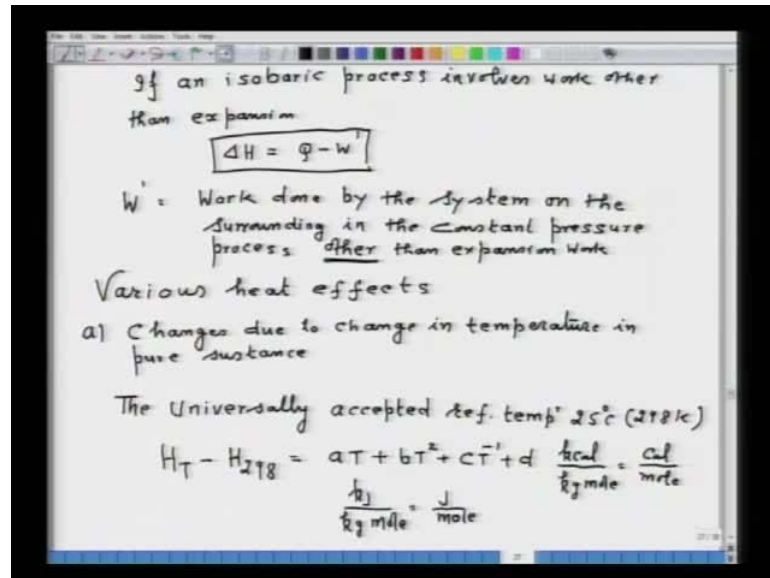 File Edit View Insert Actions Tools Help
If an isobaric process involves work other
than expansion
ΔH = Q - W'
W' = Work done by the system on the
surrounding in the constant pressure
process other than expansion work
Various heat effects
a) Changes due to change in temperature in
pure sustance
The Universally accepted ref. temp' 25°C (298K)
H_T - H_298 = aT + bT² + cT⁻¹ + d kcal/kg mole = cal/mole
kJ/kg mole = J/mole